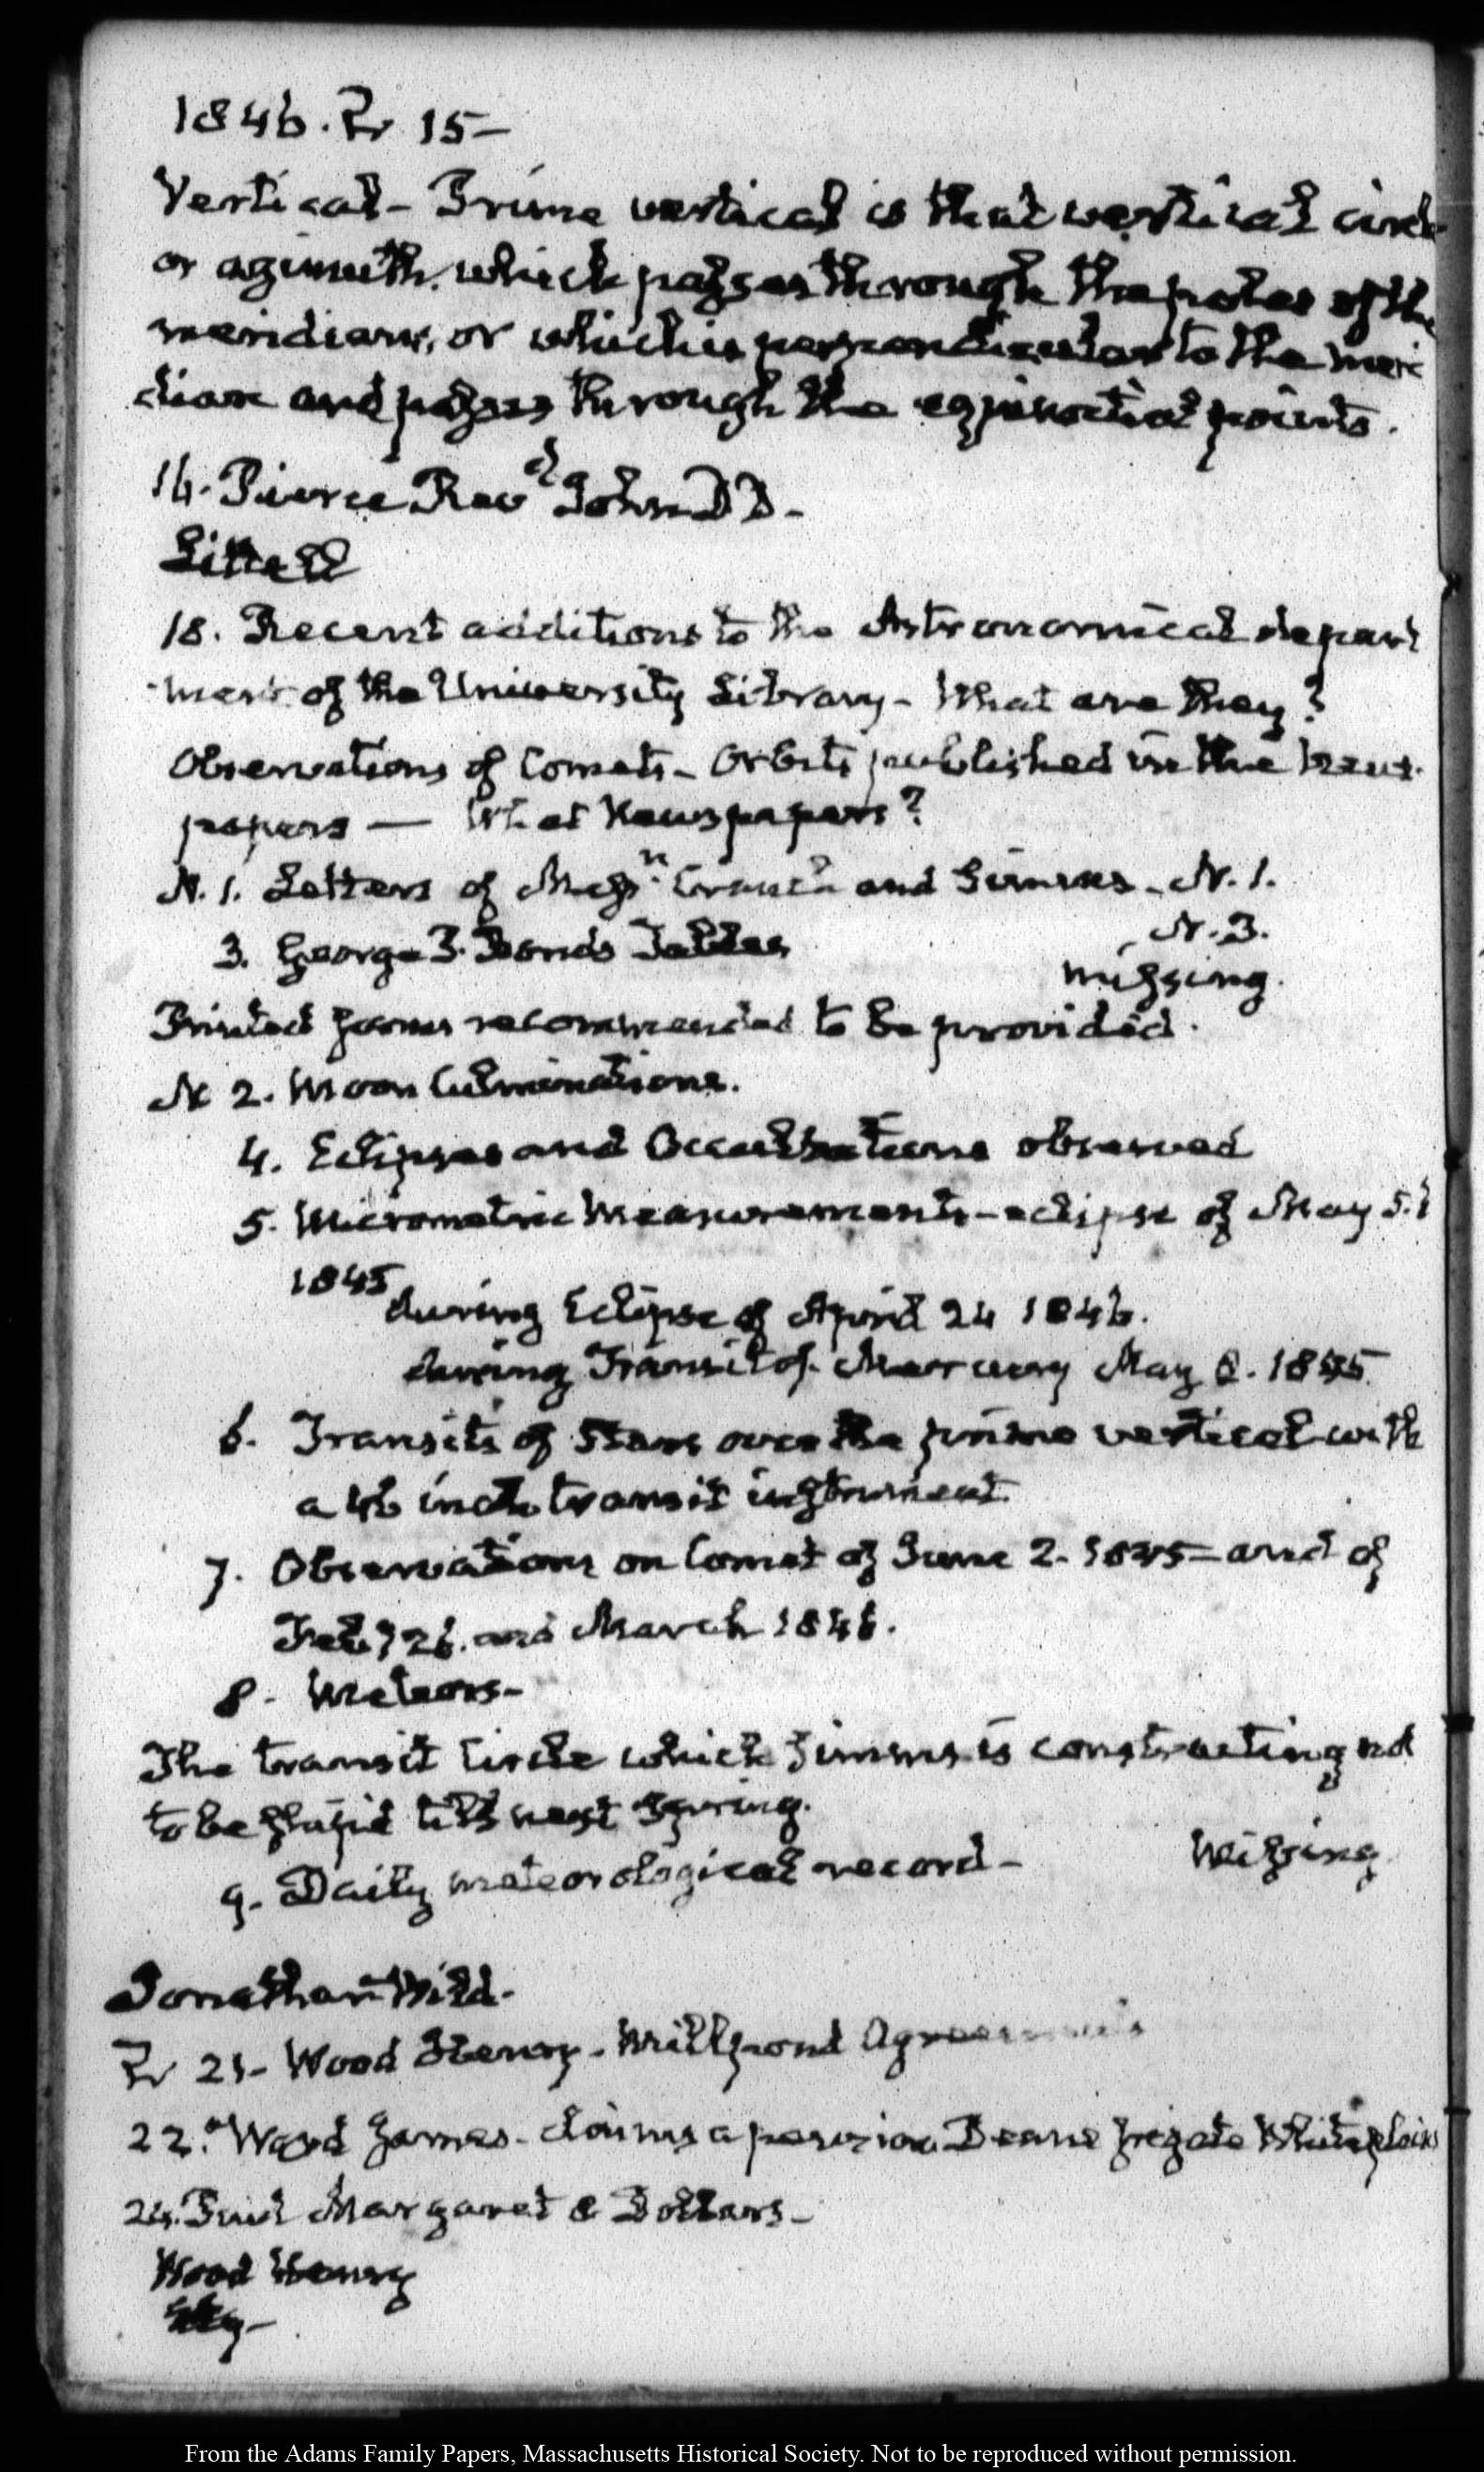 1846. Fr 15—
Vertical— Prime vertical is that vertical circle
or azimuth, which passes through the poles of the
meridians, or which is perpendicular to the meri
dian and passes through the equinoctial points.
16. Pierce Revd John D D—
Littell
18. Recent additions to the Astronomical depart
ment of the University Library— What are they?
Observations of Comets— Orbits published in the News.
papers — What Newspapers?
N. 1. Letters of Messrs and Simms— N. 1.
N. 3.
3. George P. Bonds Tables
missing.
Printed forms recommended to be provided.
N 2. Moon Culminations.
4. Eclipses and Occultations observed
5. Micrometric Measurements—eclipse of May 5.
1845
during Eclipse of April 24 1846.
during Transit of Mercury May 8. 1845
6. Transits of Stars over the prime vertical with
a 46 inch transit instrument.
7. Observations on Comet of June 2. 1845— and of
26. and March 1846.
8. Meteors—
The transit Circle which Simms is constructing not
to be till next Spring.
9. Daily meteorological record— Missing
Jonathan Wild.
Fr 21— Wood Henry— Millpond Agreements
22. James— claims a pension Deane frigate Whiteplains
24. Margaret 2 Dollars—
Wood Henry
From the Adams Family Papers, Massachusetts Historical Society. Not to be reproduced without permission.